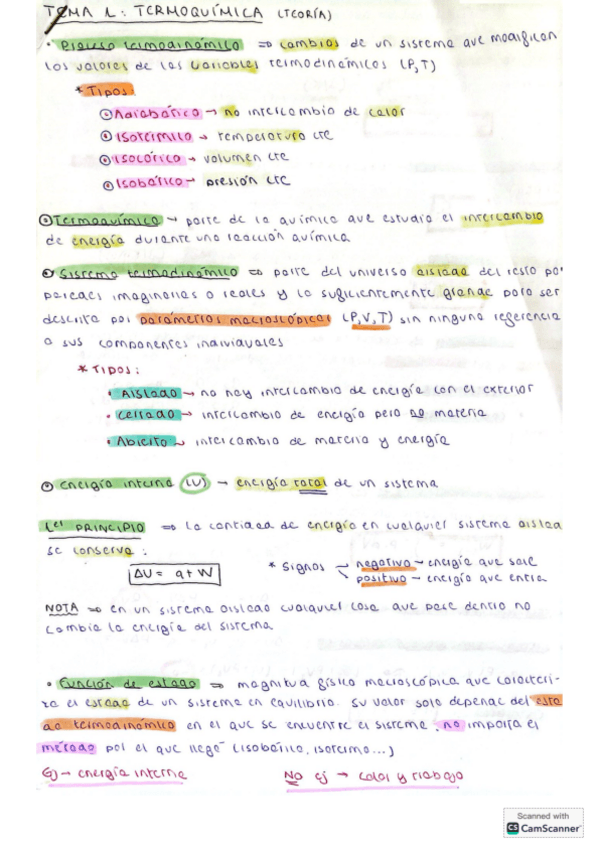 TEMA 1: TERMOQUÍMICA (TEORÍA)
• Proceso termodinámico ⇒ cambios de un sistema que modifican
los valores de las variables termodinámicas (P,T)
* Tipos:
Adiabático → no intercambio de calor
Isotérmico → temperatura cte
Isocórico → volumen cte
Isobárico → presión cte
Termoquímica → parte de la química que estudia el intercambio
de energía durante una reacción química
Sistema termodinámico ⇒ parte del universo aislada del resto por
paredes imaginarias o reales y lo suficientemente grande para ser
descrita por parámetros macroscópicos (P,V,T) sin ninguna referencia
a sus componentes individuales
* TIPOS:
• Aislado → no hay intercambio de energía con el exterior
• Cerrado → intercambio de energía pero no materia
• Abierto → intercambio de materia y energía
Energía interna (U) → energía total de un sistema
1er PRINCIPIO ⇒ la cantidad de energía en cualquier sistema aislad
se conserva:
ΔU = q + W
* Signos → negativo → energía que sale
→ positivo → energía que entra
NOTA ⇒ en un sistema aislado cualquier cosa que pase dentro no
cambia la energía del sistema
• Función de estado ⇒ magnitud físico macroscópica que caracteri-
za el estado de un sistema en equilibrio. Su valor solo depende del esta
do termodinámico en el que se encuentre el sistema, no importa el
método por el que llegó (isobárico, isotermo...)
Ej → energía interna
No ej → calor y trabajo
Scanned with
CS CamScanner